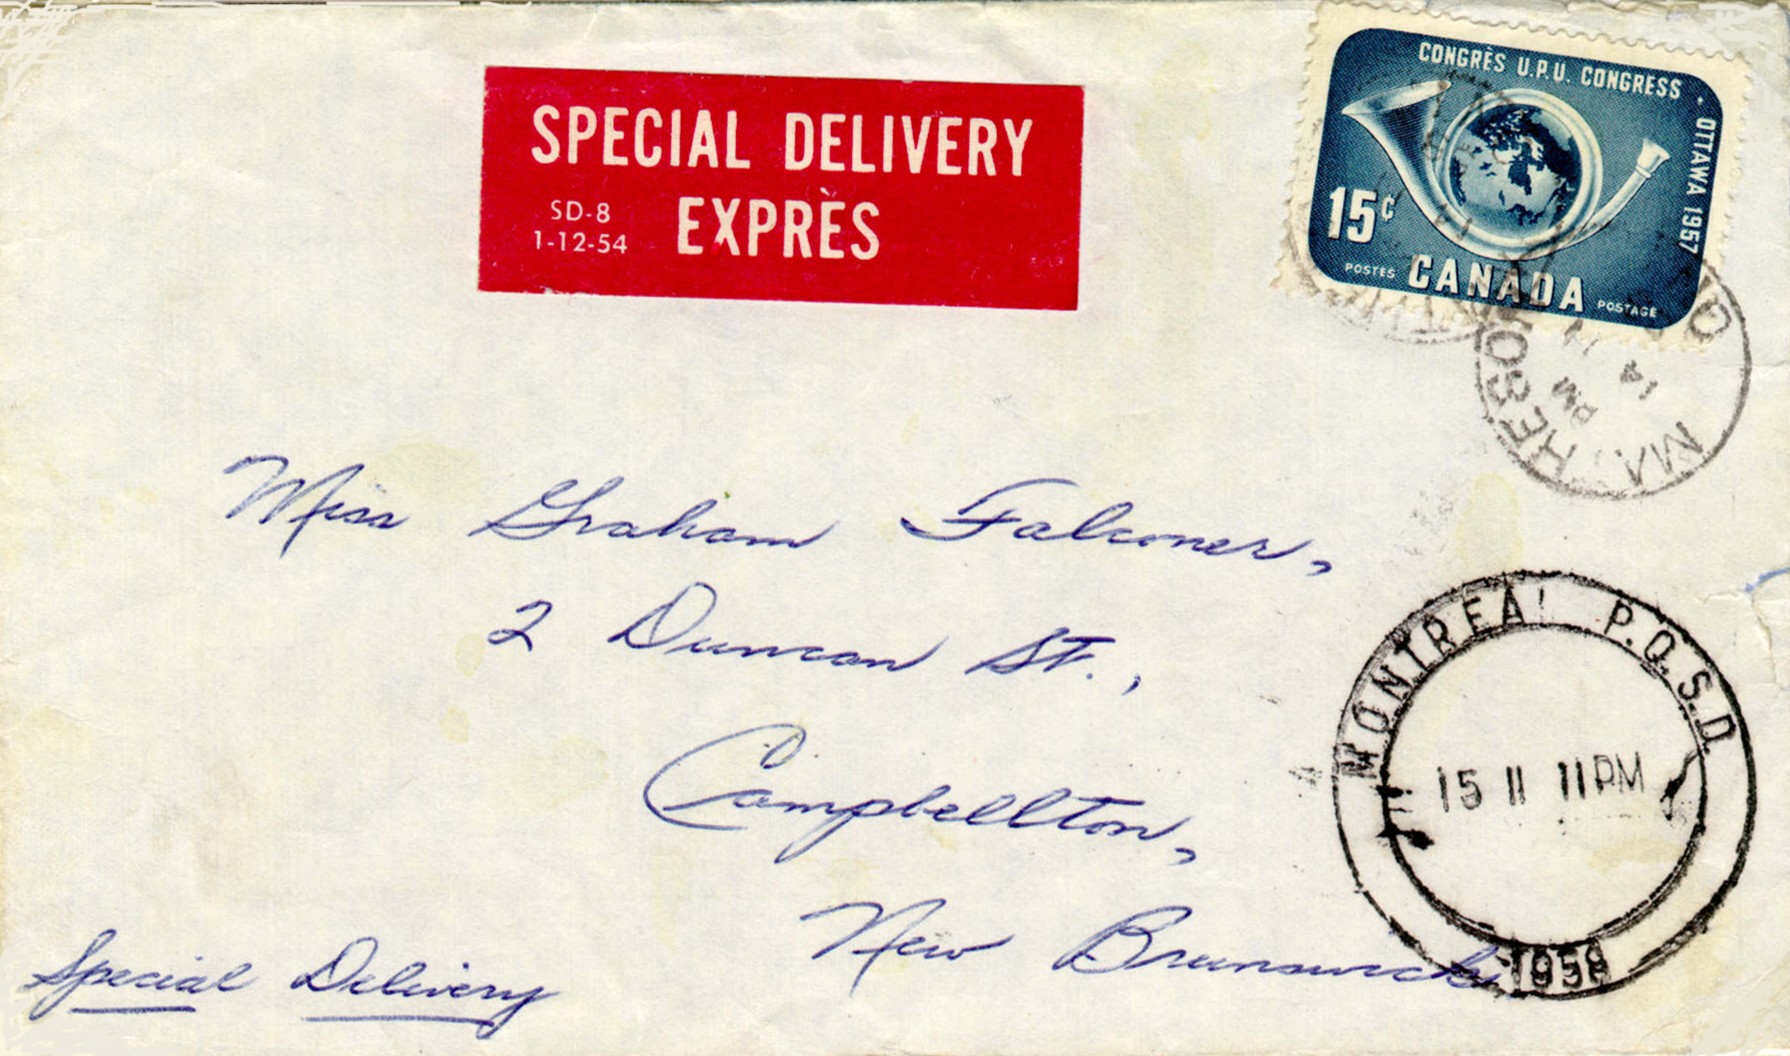 SPECIAL DELIVERY
EXPRÈS
SD-8
1-12-54
CONGRÈS U.P.U. CONGRESS · OTTAWA 1957
15¢
POSTES CANADA POSTAGE
PM
14
Miss Graham Falconer,
2 Duncan St.,
Campbellton,
New Brunswick
Special Delivery
MONTREAL P.O.S.D.
15 II 11PM
1958